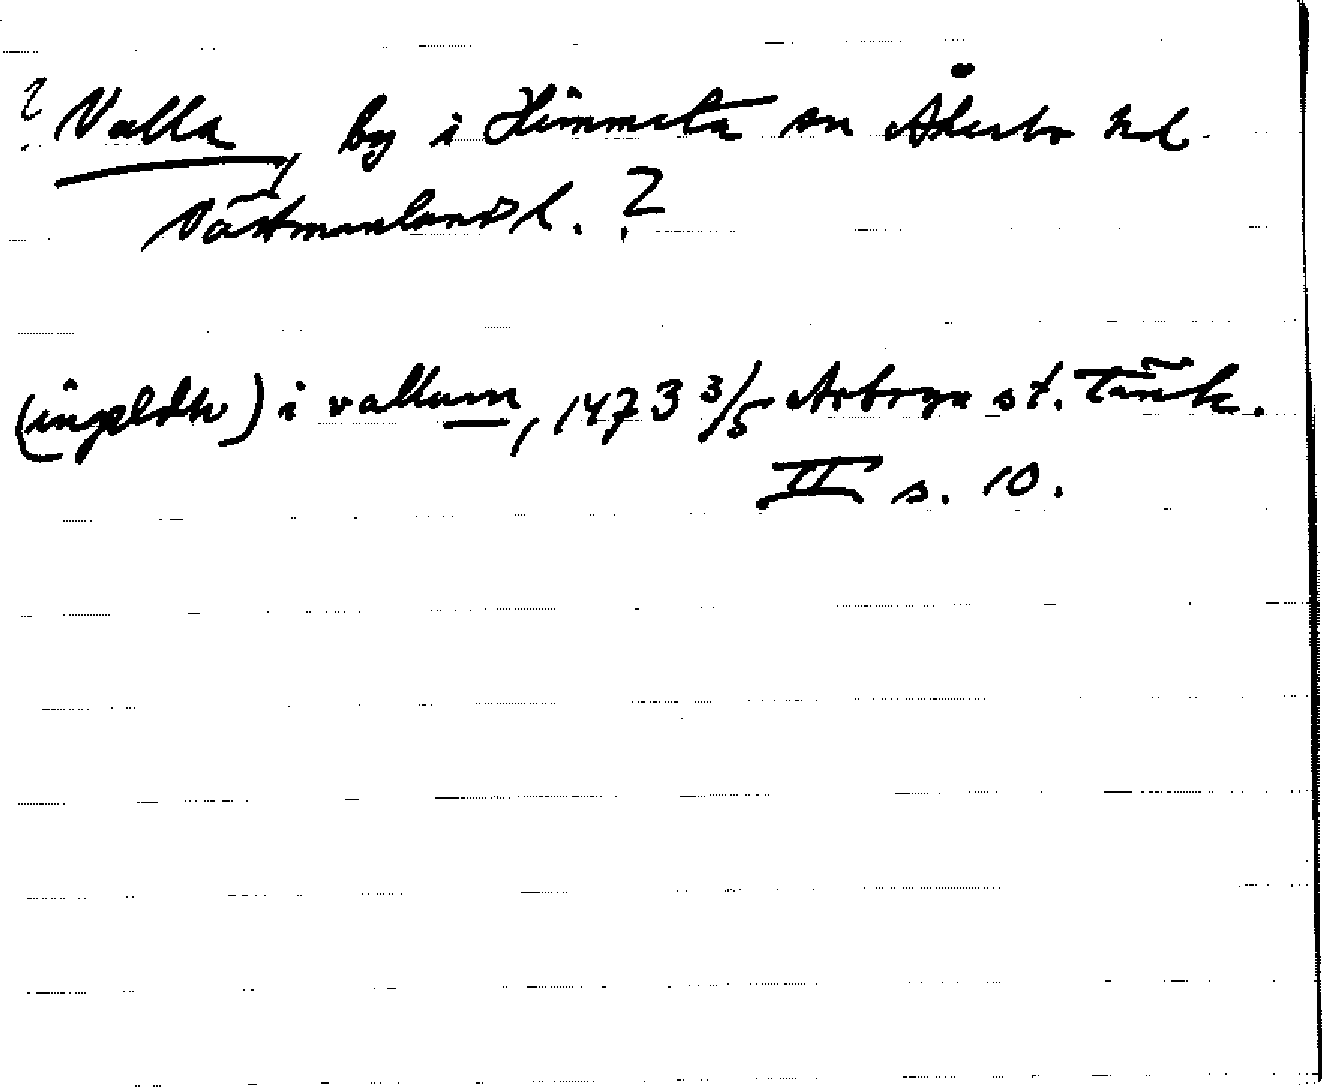 ? Valla, by i Himmeta sn Åkerbo hd
Västmanlands l. ?
(ingeldh) i vallum, 1473 3/5 Arboga st. tänk.
II s. 10.